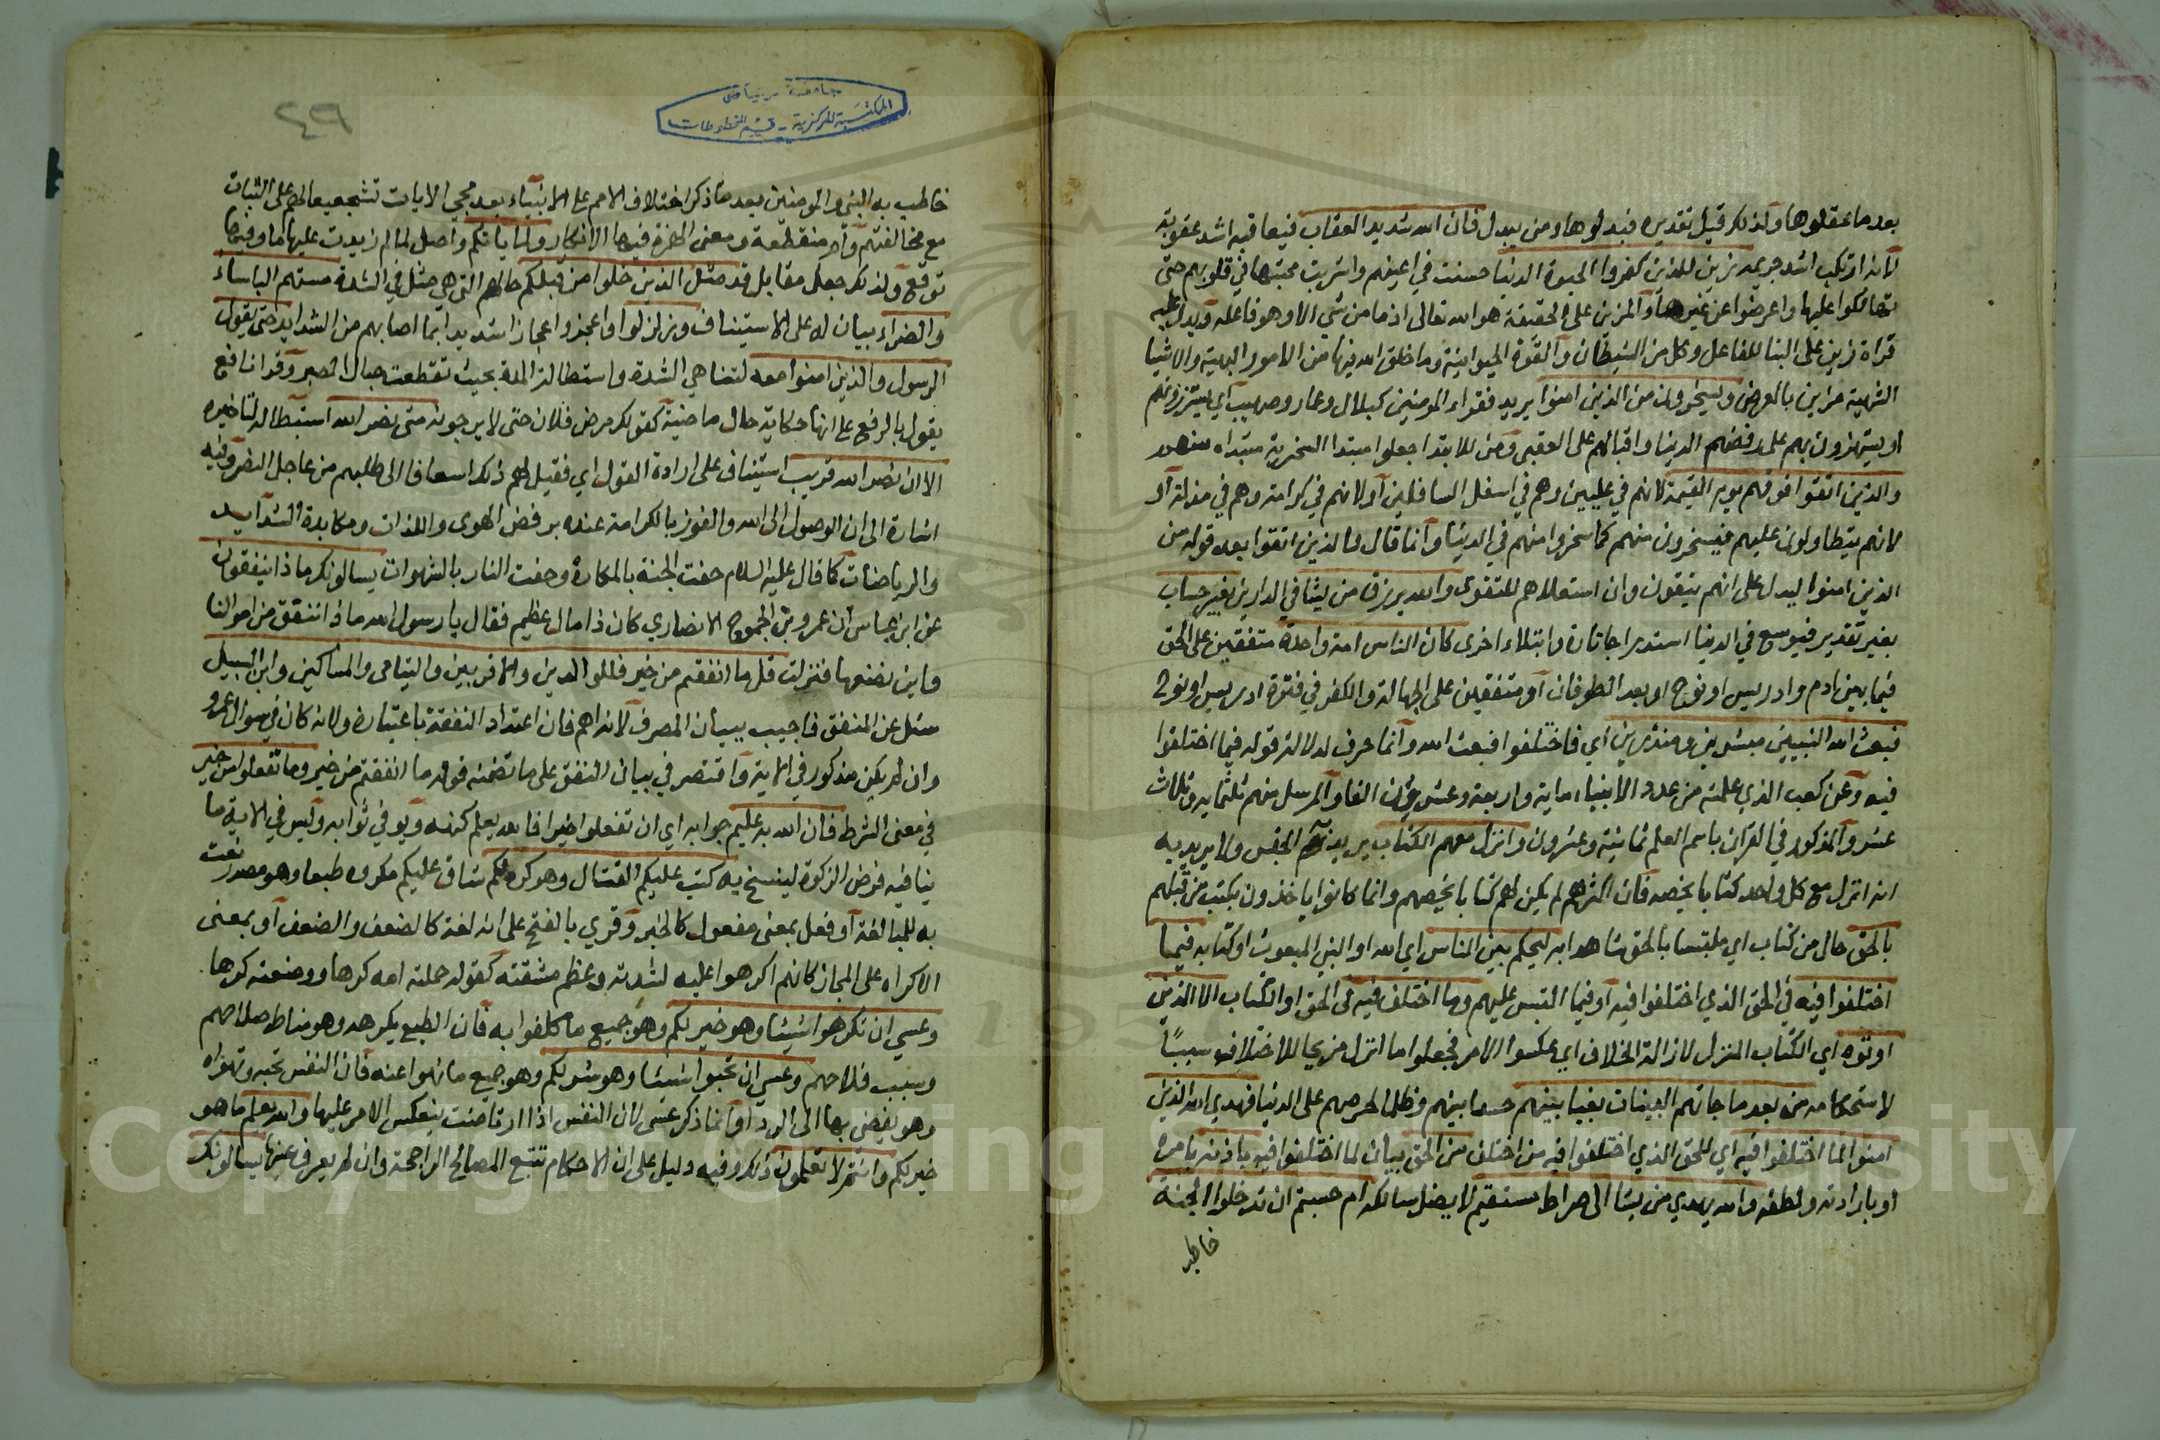 بعد ما عقلوها ولذلك قيل تقديره فبدلوها ومن يبدل فان الله شديد العقاب فيعاقبه اشد عقوبة
لانه ارتكب اشد جريمه زين للذين كفروا الحيوة الدنيا حسنت في اعينهم واشربت محبتها في قلوبهم حتى
تهالكوا عليها واعرضوا عن غيرها والمزين على الحقيقة هو الله تعالى اذ ما من شي الا وهو فاعله ويدل عليه
قراة زين على البنا للفاعل وكل من الشيطان والقوة الحيوانية وما خلق الله فيها من الامور البهية والاشيا
الشهية مزين بالعرض ويسخرون من الذين امنوا يريد فقراء المومنين كبلال وعمار وصهيب اي يسترذلونهم
او يستهزون بهم على رفضهم الدنيا واقبالهم على العقبى ومن للابتدا جعلوا مبتدا السخرية مبتداه منهم
والذين اتقوا فوقهم يوم القيمة لانهم في عليين وهم في اسفل السافلين او لانهم في كرامة وهم في مذلة او
لانهم يتطاولون عليهم فيسخرون منهم كما سخروا منهم في الدنيا وانما قال والذين اتقوا بعد قوله من
الذين امنوا ليدل على انهم متقون وان استعلاهم للتقوى والله يرزق من يشا في الدارين بغير حساب
بغير تقدير فيوسع في الدنيا استدراجا تارة وابتلاء اخرى كان الناس امة واحدة متفقين على الحق
فيما بين ادم وادريس او نوح او بعد الطوفان او متفقين على الجهالة والكفر في فترة ادريس او نوح
فبعث الله النبيين مبشرين ومنذرين اي فاختلفوا فبعث الله وانما حرف لدلالة قوله فيما اختلفوا
فيه وعن كعب الذي علمته من عدد الانبياء ماية واربعة وعشرون الفا والمرسل منهم ثلثماية وثلاث
عشر والمذكور في القران باسم العلم ثمانية وعشرون وانزل معهم الكتاب يريد به الجنس ولا يريد به
انه انزل مع كل واحد كتابا يخصه فان اكثرهم لم يكن لهم كتابا يخصهم وانما كانوا ياخذون بكتب من قبلهم
بالحق حال من كتاب اي ملتبسا بالحق شاهدا به ليحكم بين الناس اي الله او النبي المبعوث او كتابه فيما
اختلفوا فيه في الحق الذي اختلفوا فيه او فيما التبس عليهم وما اختلف فيه في الحق او الكتاب الا الذين
اوتوه اي الكتاب المنزل لازالة الخلاف اي عكسوا الامر فجعلوا ما انزل مزيحا للاختلاف سببا
لاستحكامه من بعد ما جاتهم البينات بغيا بينهم حسدا بينهم وظلما لحرصهم على الدنيا فهدي الله الذين
امنوا لما اختلفوا فيه اي للحق الذي اختلفوا فيه من اختلف من الحق بيان لما اختلفوا فيه باذنه بامره
او بارادته ولطفه والله يهدي من يشا الى صراط مستقيم لا يضل سالكه ام حسبتم ان تدخلوا الجنة
خاطب
جامعة الرياض
المكتبة المركزية - قسم المخطوطات
٢٤٩
خاطب به النبي والمومنين بعد ما ذكر اختلاف الامم على الانبياء بعد مجي الايات تشجيعا لهم على الثبات
مع مخالفتهم وام منقطعة ومعنى الهمزة فيها الانكار ولما ياتكم واصل لما لم زيدت عليها ما وفيها
توقع ولذلك جعل مقابل قد مثل الذين خلوا من قبلكم حالهم التي هي مثل في الشدة مستهم الباساء
والضراء بيان له على الاستيناف وزلزلوا وازعجوا ازعاجا شديدا بما اصابهم من الشدايد حتى يقول
الرسول والذين امنوا معه لتناهي الشدة واستطالة المدة بحيث تقطعت حبال الصبر وقرا نافع
يقول بالرفع على انها حكاية حال ماضية كقولك مرض فلان حتى لا يرجونه متى نصر الله استبطا له لتاخيره
الا ان نصر الله قريب استيناف على ارادة القول اي فقيل لهم ذلك اسعافا الى طلبهم من عاجل النصر وفيه
اشارة الى ان الوصول الى الله والفوز بالكرامة عنده برفض الهوى واللذات ومكابدة الشدايد
والرياضات كما قال عليه السلام حفت الجنة بالمكاره وحفت النار بالشهوات يسالونك ماذا ينفقون
عن ابن عباس ان عمرو بن الجموح الانصاري كان ذا مال عظيم فقال يا رسول الله ماذا ننفق من اموالنا
واين نضعها فنزلت قل ما انفقتم من خير فللوالدين والاقربين واليتامى والمساكين وابن السبيل
سئل عن المنفق فاجيب ببيان المصرف لانه اهم فان اعتداد النفقة باعتباره ولانه كان في سوال عمرو
وان لم يكن مذكور في الاية واقتصر في بيان المنفق على ما تضمنه قوله ما انفقتم من خير وما تفعلوا من خير
في معنى الشرط فان الله به عليم جوابه اي ان تفعلوا خيرا فان الله يعلم كنهه ويوفي ثوابه وليس في الاية ما
ينافيه فرض الزكوة لينسخ به كتب عليكم القتال وهو كره لكم شاق عليكم مكروه طبعا وهو مصدر نعت
به للمبالغة او فعل بمعنى مفعول كالخبز وقري بالفتح على انه لغة كالضعف والضعف او بمعنى
الاكراه على المجاز كانهم اكرهوا عليه لشدته وعظم مشقته كقوله حملته امه كرها ووضعته كرها
وعسي ان تكرهوا شيئا وهو خير لكم وهو جميع ما كلفوا به فان الطبع يكرهه وهو مناط صلاحهم
وسبب فلاحهم وعسي ان تحبوا شيئا وهو شر لكم وهو جميع ما نهوا عنه فان النفس تحبه وتهواه
وهو يفضي بها الى الردى وانما ذكر عسى لان النفس اذا ارتاضت ينعكس الامر عليها والله يعلم ما هو
خير لكم وانتم لا تعلمون ذلك وفيه دليل على ان الاحكام تتبع المصالح الراجحة وان لم يعرف عينها يسالونك